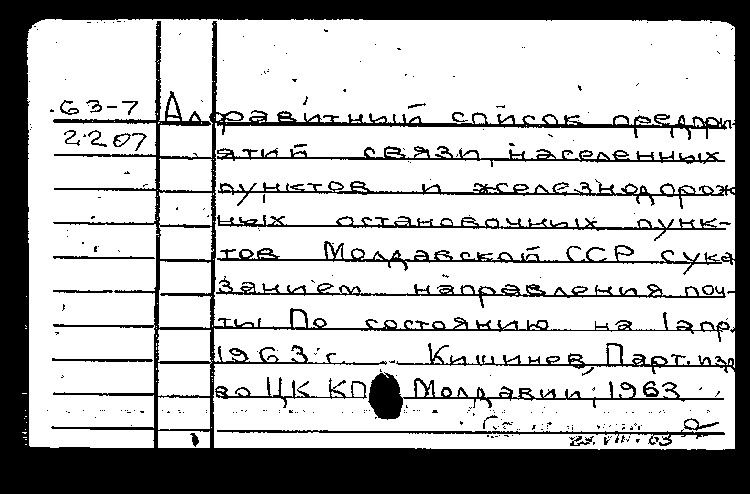 63-7 Алфавитный список предпри-
2207 ятий связи, населенных
пунктов и железнодорож
ных остановочных пунк-
тов Молдавской ССР с ука
занием направления поч-
ты. По состоянию на 1 апр.
1963 г. Кишинев, Парт. изд
во ЦК КП Молдавии, 1963
23.VIII.63